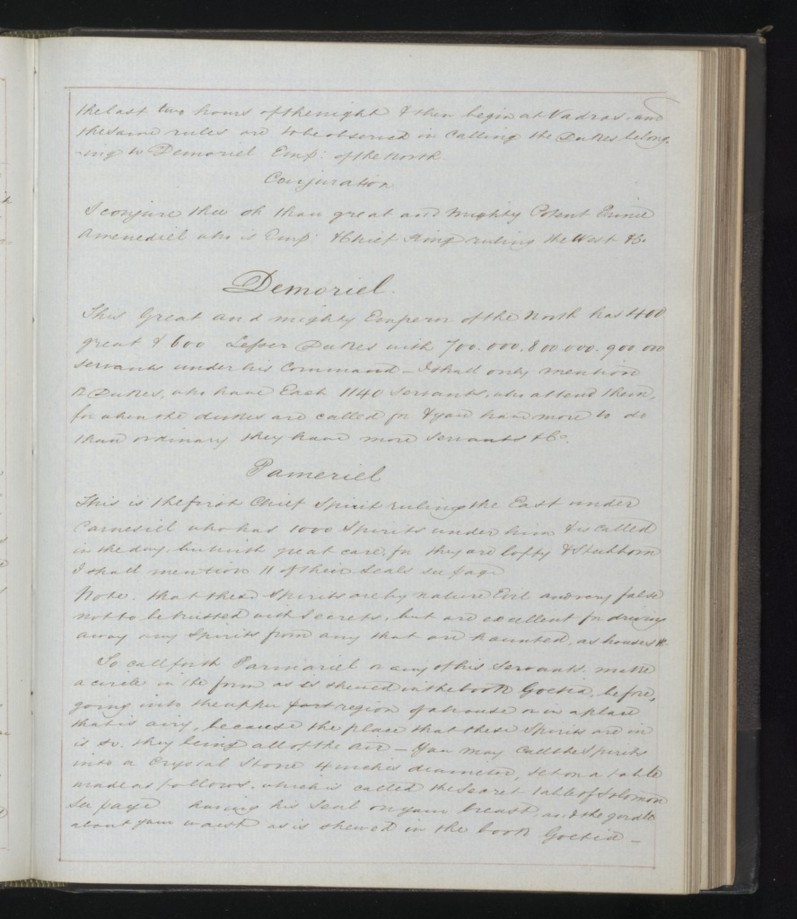 the last two hours of the night & then begin at Vadras. and
the same rules are to be observed in calling the Dukes belong
-ing to Demoriel Emp: of the North
Conjuration
I conjure thee oh thou great and mighty & Potent Prince
Amenediel who is Emp: & Chief King ruling the West &c.
Demoriel.
This Great and mighty Emperor of the North has 400
great & 600 Lesser Dukes with 700.000.800.000.900.000
servants under his Command – I shall only mention
Dukes, who have Each 1140 Servants, who attend them,
for when the dukes are called for & you have more to do
than ordinary they have more Servants &c.
Pameriel
This is the first Chief Spirit ruling the East under
Carnesiel who has 1000 Spirits under him & is called
in the day, but with great care, for they are lofty & Stubborn
I shall mention 11 of their Seals see page
Note. that these Spirits are by nature Evil and very false
not to be trusted with Secrets, but are excellent for driving
away any Spirits from any that are haunted, as houses &c
To call forth Parmariel or any of his Servants. make
a circle in the form as is shewed in the book Goetia, before,
going into the upper region of a house or in a place
that is airy, because the place that these Spirits are in
is &c. they being all of the air – You may call these Spirits
into a Crystal Stone 4 inches diameter, set on a table
made as follows, which is called the Secret table of Solomon
See page having his Seal on your breast, and the girdle
about your waist as is shewed in the book Goetia –